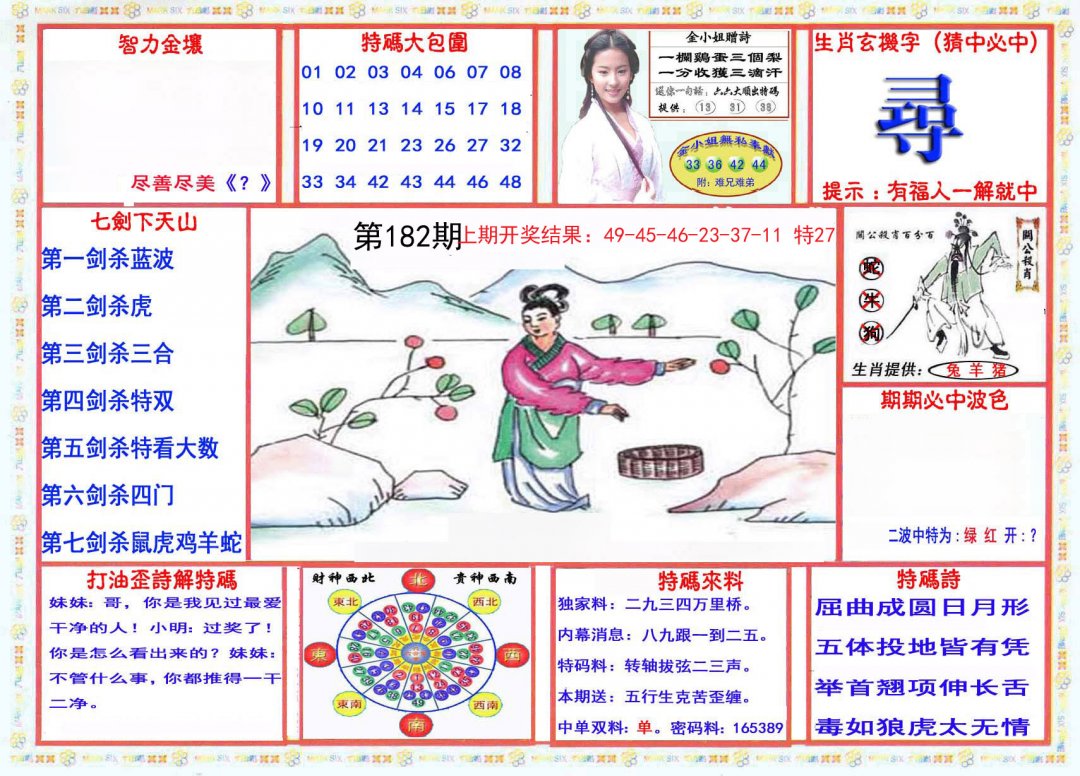 智力金壤
尽善尽美《？》
特碼大包圍
01 02 03 04 06 07 08
10 11 13 14 15 17 18
19 20 21 23 26 27 32
33 34 42 43 44 46 48
金小姐贈詩
一欄鷄蛋三個梨
一分收獲三滴汗
送你一句話：六六大順出特碼
提供：13 31 38
金小姐無私奉獻
33 36 42 44
附：难兄难弟
生肖玄機字（猜中必中）
尋
提示：有福人一解就中
七劍下天山
第一剑杀蓝波
第二剑杀虎
第三剑杀三合
第四剑杀特双
第五剑杀特看大数
第六剑杀四门
第七剑杀鼠虎鸡羊蛇
第182期
上期开奖结果：49-45-46-23-37-11 特27
關公殺肖百分百
關公殺肖
蛇
牛
狗
生肖提供：兔 羊 猪
期期必中波色
二波中特为：绿 红 开：？
打油歪詩解特碼
妹妹：哥，你是我见过最爱
干净的人！小明：过奖了！
你是怎么看出来的？妹妹：
不管什么事，你都推得一干
二净。
财神西北 貴神西南
北
東北 西北
東 西
東南 西南
南
特碼來料
独家料：二九三四万里桥。
内幕消息：八九跟一到二五。
特码料：转轴拔弦二三声。
本期送：五行生克苦歪缠。
中单双料：单。密码料：165389
特碼詩
屈曲成圆日月形
五体投地皆有凭
举首翘项伸长舌
毒如狼虎太无情